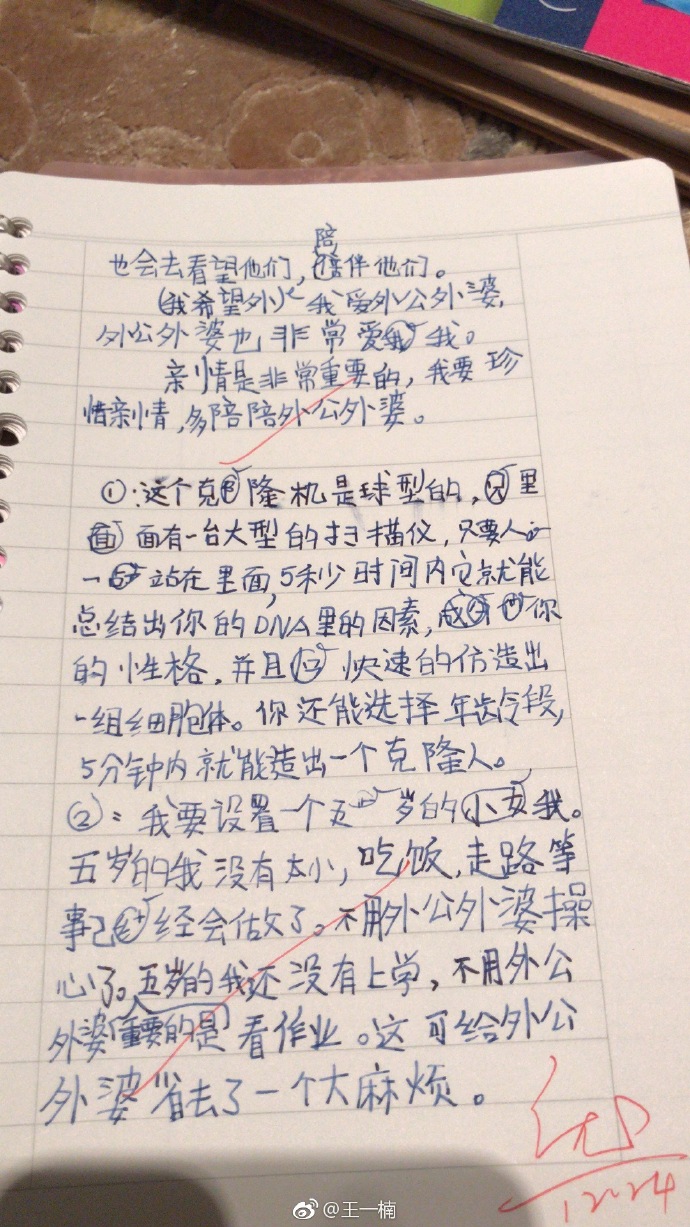 陪
也会去看望他们，陪伴他们。
(我希望外) 我爱外公外婆，
外公外婆也非常爱我我。
亲情是非常重要的，我要珍
惜亲情，多陪陪外公外婆。
①：这个克隆机是球型的，里
面面有一台大型的扫描仪，只要人
一站在里面，5秒时间内它就能
总结出你的DNA里的因素，成你
的性格，并且快速的仿造出
一组细胞体。你还能选择年龄段，
5分钟内就能造出一个克隆人。
②：我要设置一个五岁的小女我。
五岁的我没有太小，吃饭，走路等
事已经会做了。不用外公外婆操
心了。五岁的我还没有上学，不用外公
外婆(重要的是)看作业。这可给外公
外婆省去了一个大麻烦。
优
12.24
@王一楠